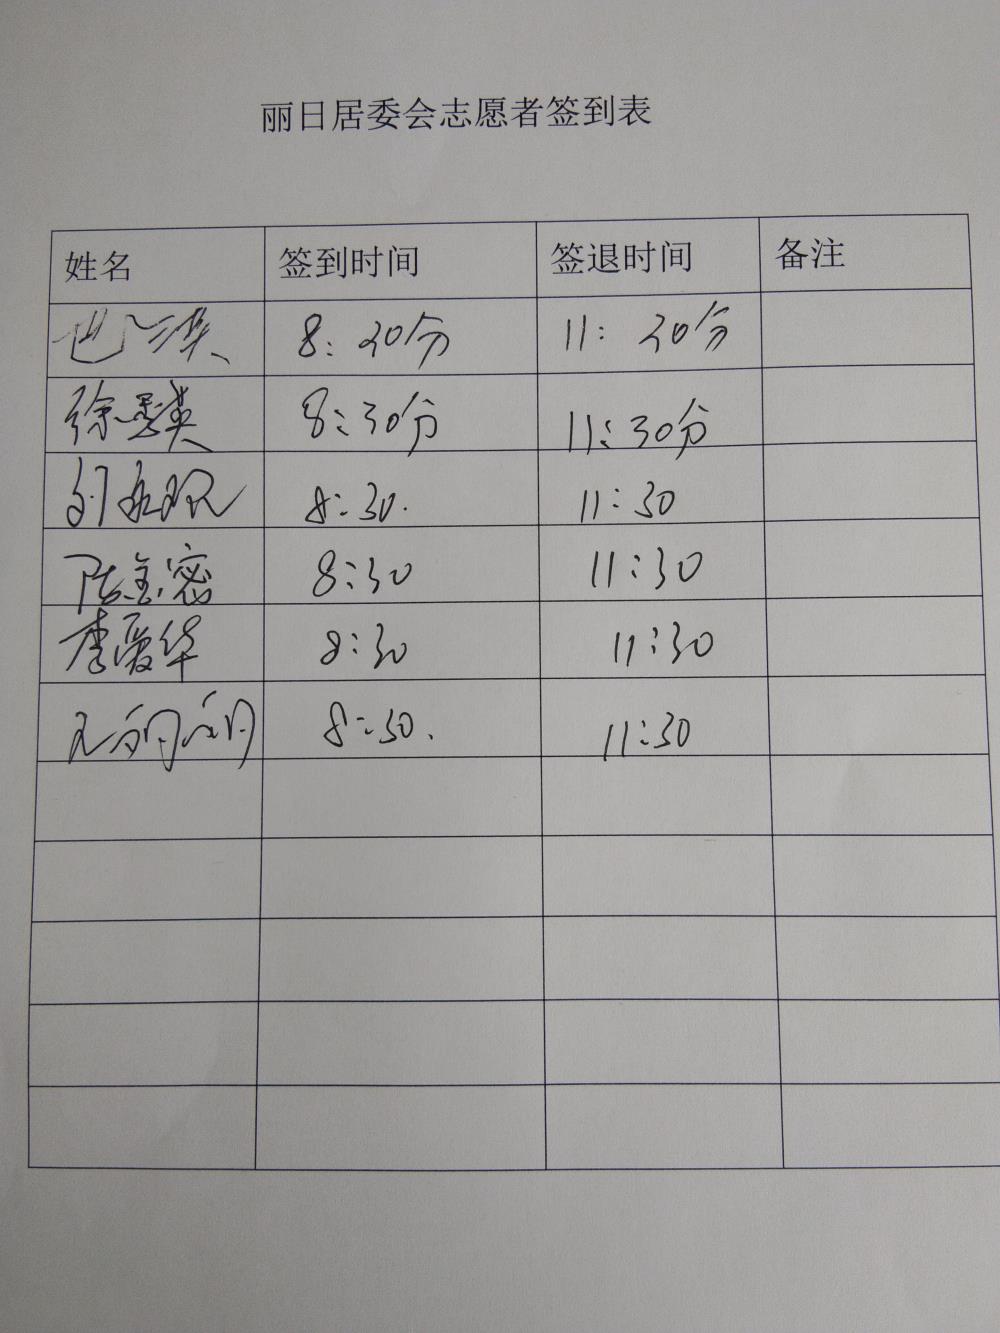 丽日居委会志愿者签到表
姓名 签到时间 签退时间 备注
8:20分 11:20分
徐秀英 8:30分 11:30分
8:30. 11:30
陈金密 8:30 11:30
李爱华 8:30 11:30
8:30. 11:30